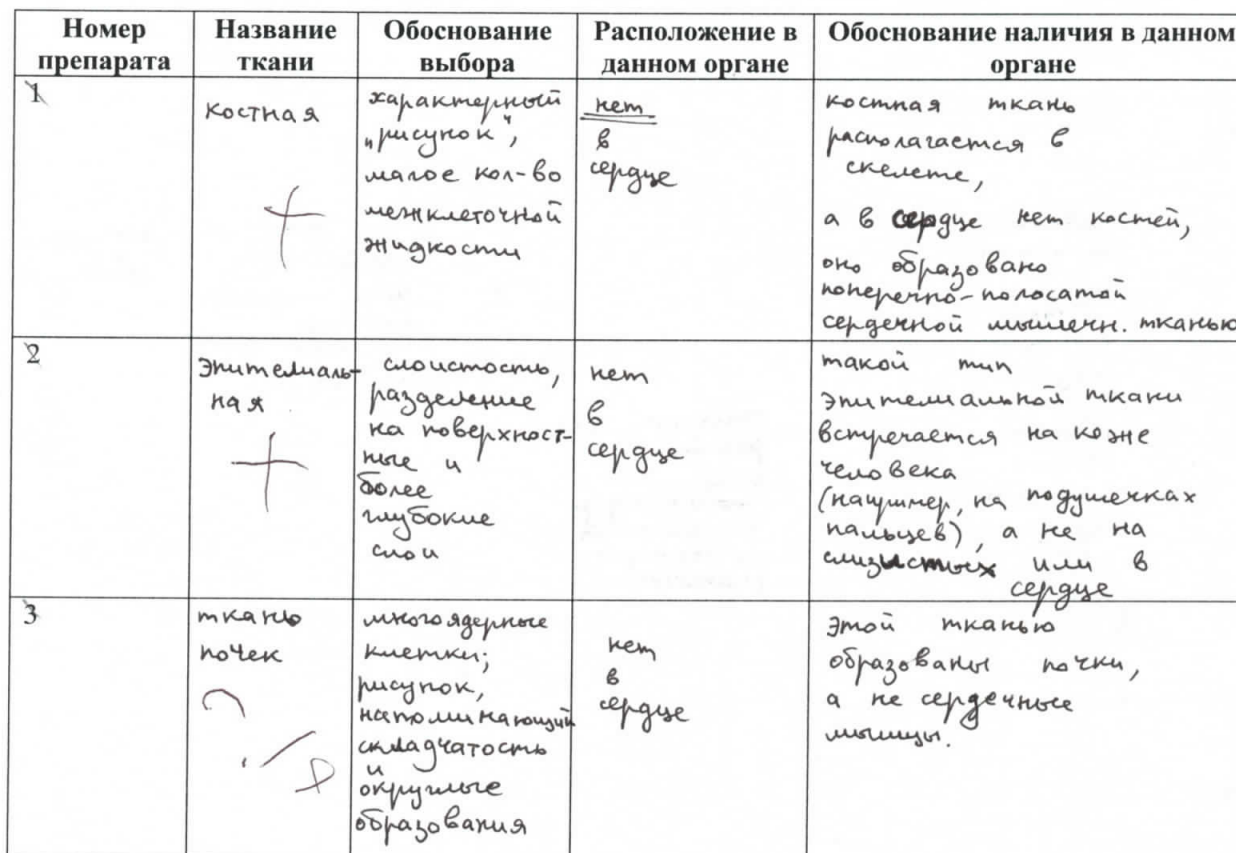 Номер препарата
Название ткани
Обоснование выбора
Расположение в данном органе
Обоснование наличия в данном органе
1
костная
характерный
„рисунок“,
малое кол-во
межклеточной
жидкости
нет
в
сердце
костная ткань
располагается в
скелете,
а в сердце нет костей,
оно образовано
поперечно-полосатой
сердечной мышечн. тканью
2
Эпителиаль-
ная
слоистость,
разделение
на поверхност-
ные и
более
глубокие
слои
нет
в
сердце
такой тип
эпителиальной ткани
встречается на коже
человека
(например, на подушечках
пальцев), а не на
слизистых или в
сердце
3
ткань
почек
многоядерные
клетки;
рисунок,
напоминающий
складчатость
и
округлые
образования
нет
в
сердце
этой тканью
образованы почки,
а не сердечные
мышцы.